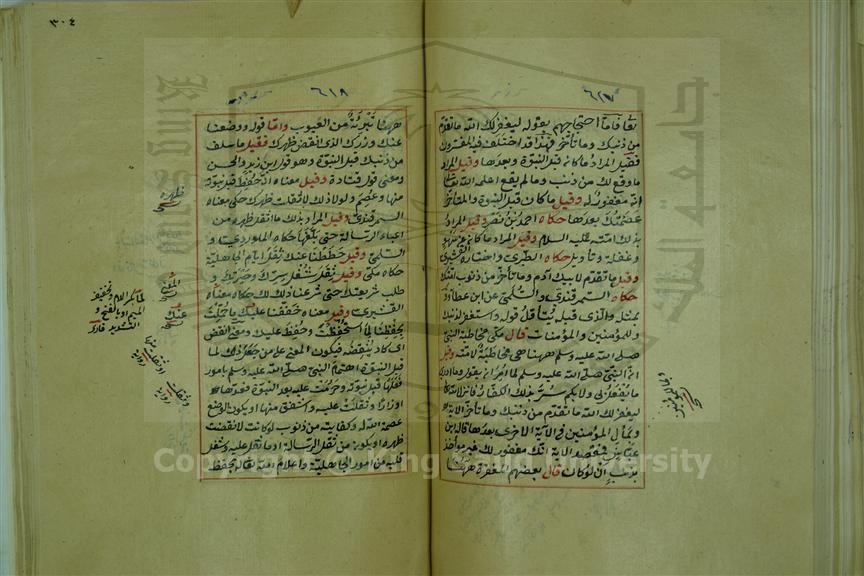 ٣٠٤
٦١٧
تعالى فاما احتجاجهم بقوله ليغفر لك الله ما تقدم
من ذنبك وما تأخر فهذا قد اختلف فيه المفسرون
فقيل المراد ما كان قبل النبوة وبعدها وقيل المراد
ما وقع لك من ذنب وما لم يقع اعلمه الله تعالى
انه مغفور له وقيل ما كان قبل النبوة والمتأخر
عصمتك بعدها حكاه احمد بن نصر وقيل المراد
بذلك امته عليه السلام وقيل المراد ما كان عن سهو
وغفلة وتأويل حكاه الطبرى واختاره القشيرى
وقيل ما تقدم لابيك ادم وما تأخر من ذنوب امتك
حكاه السمرقندى والسلمى عن ابن عطاء
بمثله والذى قبله يتأول قوله واستغفر لذنبك
وللمؤمنين والمؤمنات قال مكى مخاطبة النبى
صلى الله عليه وسلم ههنا هى مخاطبة لامته وقيل
ان النبى صلى الله عليه وسلم لما امر ان يقول وما ادرى
ما يفعل بى ولا بكم سر بذلك الكفار فانزل الله تعالى
ليغفر لك الله ما تقدم من ذنبك وما تأخر الآية
وبمآل المؤمنين فى الآية الاخرى بعدها قاله ابن
عباس فمقصد الآية انك مغفور لك غير مؤاخذ
بذنب ان لو كان قال بعضهم المغفرة ههنا
٦١٨
ههنا تبرئة من العيوب واما قوله ووضعنا
عنك وزرك الذى انقض ظهرك فقيل ما سلف
من ذنبك قبل النبوة وهو قول ابن زيد والحسن
ومعنى قول قتادة وقيل معناه انه حفظ قبل نبوته
منها وعصم ولولا ذلك لاثقلت ظهرك حكى معناه
السمرقندى وقيل المراد بذلك ما اثقل ظهره من
اعباء الرسالة حتى بلغها حكاه الماوردى و
السلمى وقيل حططنا عنك ثقل ايام الجاهلية
حكاه مكى وقيل ثقل شغل سرك وحيرتك و
طلب شريعتك حتى شرعنا ذلك لك حكاه معناه
القشيرى وقيل معناه خففنا عليك ما حملت
بحفظنا لما استحفظت وحفظ عليك ومعنى انقض
اى كاد ينقضه فيكون المعنى على من جعل ذلك لما
قبل النبوة اهتمام النبى صلى الله عليه وسلم بامور
فعلها قبل نبوته وحرمت عليه بعد النبوة فعدها
اوزارا وثقلت عليه واشفق منها او يكون الوضع
عصمة الله له وكفايته من ذنوب لو كانت لانقضت
ظهره او يكون من ثقل الرسالة او ما ثقل عليه وشغل
قلبه من امور الجاهلية واعلام الله تعالى له بحفظ
ظهره
المعنى
عنك
او ثقلت
رواية
وثقلت
رواية
جامعة الملك
King Saud University
Copyright © King Saud University